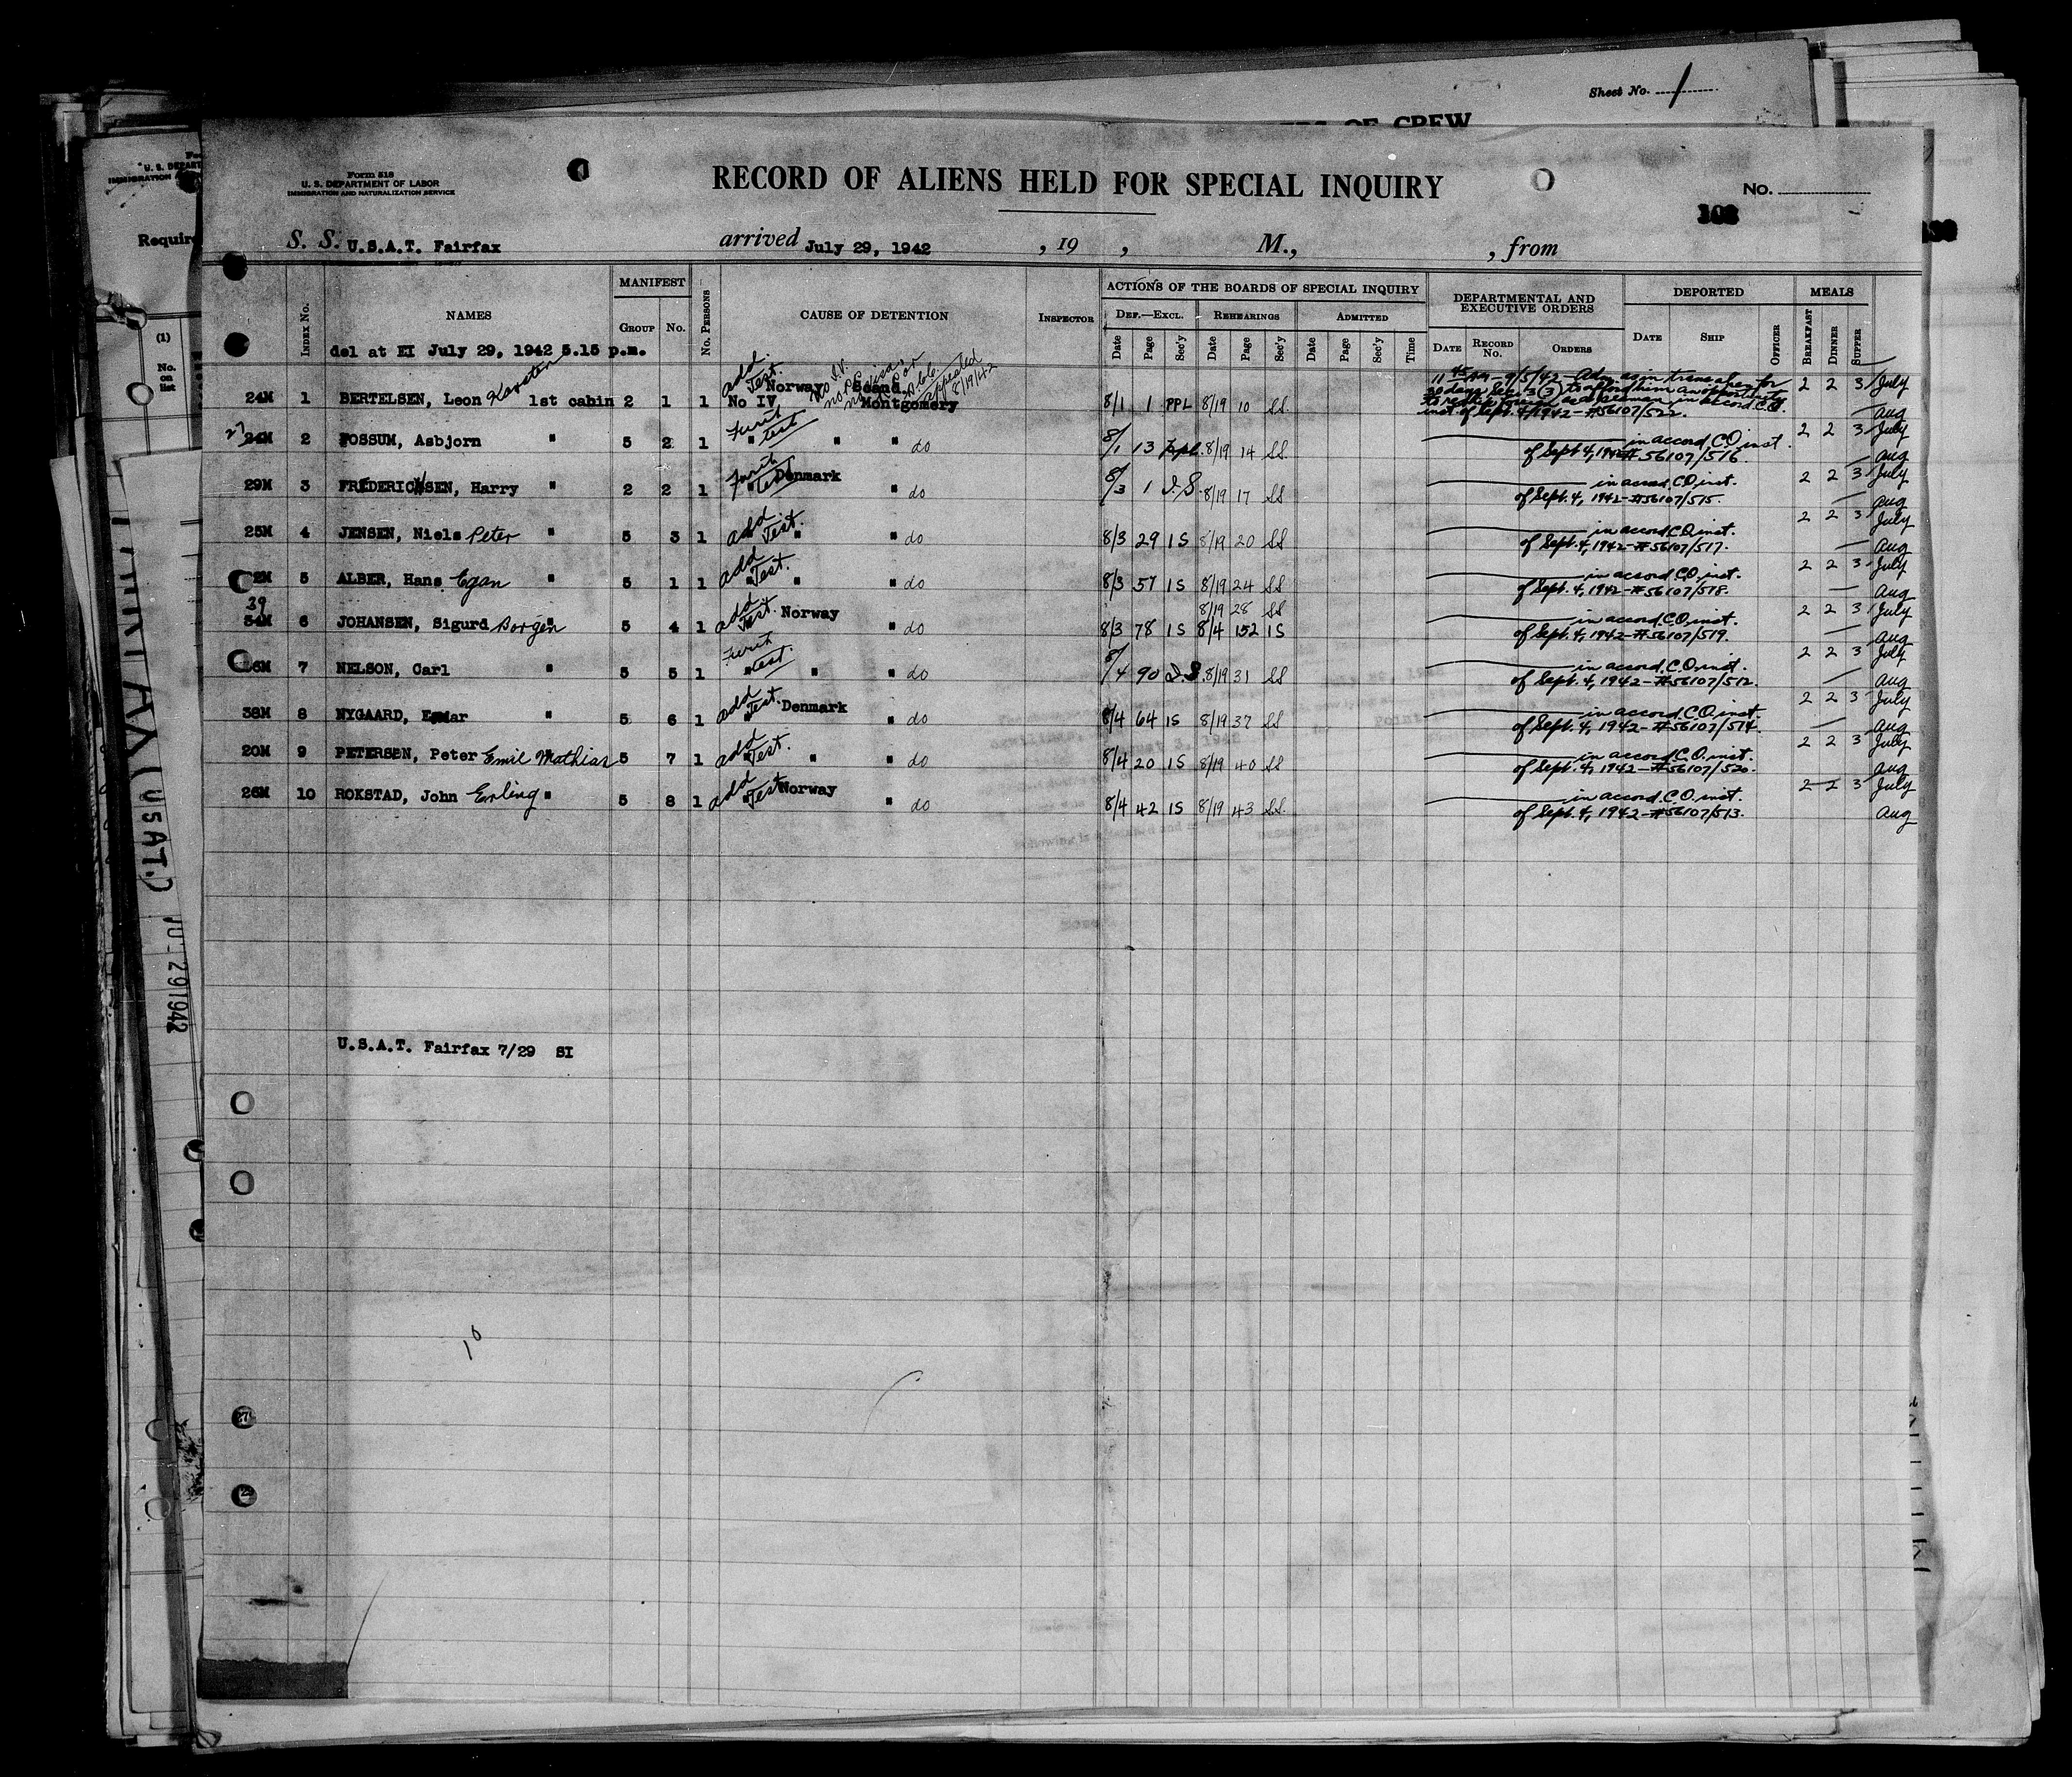 Sheet No. 1
OF CREW
Form 518
U. S. DEPARTMENT OF LABOR
IMMIGRATION AND NATURALIZATION SERVICE
RECORD OF ALIENS HELD FOR SPECIAL INQUIRY
No.
103
S. S. U.S.A.T. Fairfax arrived July 29, 1942 , 19 , M., , from
Require
(1)
No. on list
INDEX No. NAMES MANIFEST GROUP No. No. PERSONS CAUSE OF DETENTION INSPECTOR ACTIONS OF THE BOARDS OF SPECIAL INQUIRY DEPARTMENTAL AND EXECUTIVE ORDERS DEPORTED MEALS
DEF.—EXCL. REHEARINGS ADMITTED
Date Page Sec'y Date Page Sec'y Date Page Sec'y Time DATE RECORD No. ORDERS DATE SHIP OFFICER BREAKFAST DINNER SUPPER
del at EI July 29, 1942 5.15 p.m.
24M 1 BERTELSEN, Leon Karsten 1st cabin 2 1 1 add. Test. Norway Scand. No IV Montgomery appealed 8/19/42 8/1 1 PPL 8/19 10 SS 2 2 3 July
inst. of Sept. 4/1942 - #56107/522. Aug
27 24M 2 FOSSUM, Asbjorn " 5 2 1 test " " " do 8/1 13 ppl. 8/19 14 SS in accord C.O. inst. 2 2 3 July
of Sept 4, 1942 # 56107/516. Aug
29M 3 FREDERICKSEN, Harry " 2 2 1 test " Denmark " do 8/3 1 I.S. 8/19 17 SS in accord. C.O. inst. 2 2 3 July
of Sept. 4, 1942 - #56107/515. Aug
25M 4 JENSEN, Niels Peter " 5 3 1 add. Test. " " do 8/3 29 IS 8/19 20 SS in accord C.O. inst. 2 2 3 July
of Sept. 4, 1942 - #56107/517. Aug
2M 5 ALBER, Hans Egan " 5 1 1 add Test. " " " do 8/3 57 IS 8/19 24 SS in accord C.O. inst. 2 2 3 July
of Sept. 4, 1942 - #56107/518. Aug
8/19 28 SS
39 34M 6 JOHANSEN, Sigurd Borgen " 5 4 1 add Test. Norway " do 8/3 78 IS 8/4 152 IS in accord. C.O. inst. 2 2 3 July
of Sept. 4, 1942 - #56107/519. Aug
6M 7 NELSON, Carl " 5 5 1 test. " " " do 8/4 90 I.S. 8/19 31 SS in accord. C.O. inst. 2 2 3 July
of Sept. 4, 1942 - #56107/512. Aug
38M 8 NYGAARD, " 5 6 1 add Test. Denmark " do 8/4 64 IS 8/19 37 SS in accord C.O. inst. 2 2 3 July
of Sept. 4, 1942 - #56107/514. Aug
20M 9 PETERSEN, Peter Emil Mathias " 5 7 1 add Test. " " " do 8/4 20 IS 8/19 40 SS in accord C.O. inst. 2 2 3 July
of Sept. 4, 1942 - #56107/520. Aug
26M 10 ROKSTAD, John Erling " 5 8 1 add Test " Norway " do 8/4 42 IS 8/19 43 SS. in accord C.O. inst. 2 2 3 July
of Sept. 4, 1942 - #56107/513. Aug
U.S.A.T. Fairfax 7/29 SI
10
(USAT.)
JUL 29 1942